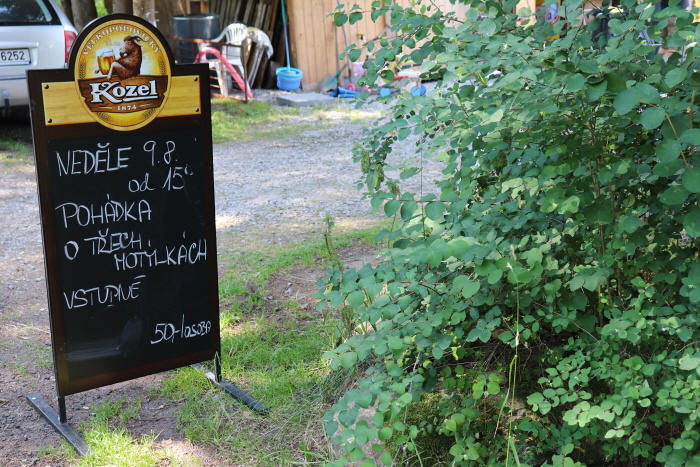 6252
VELKOPOPOVICKÝ
Kozel
1874
NEDĚLE 9.8.
od 15⁰⁰
POHÁDKA
O TŘECH
MOTÝLKÁCH
VSTUPNÉ
50,-/OSOBA